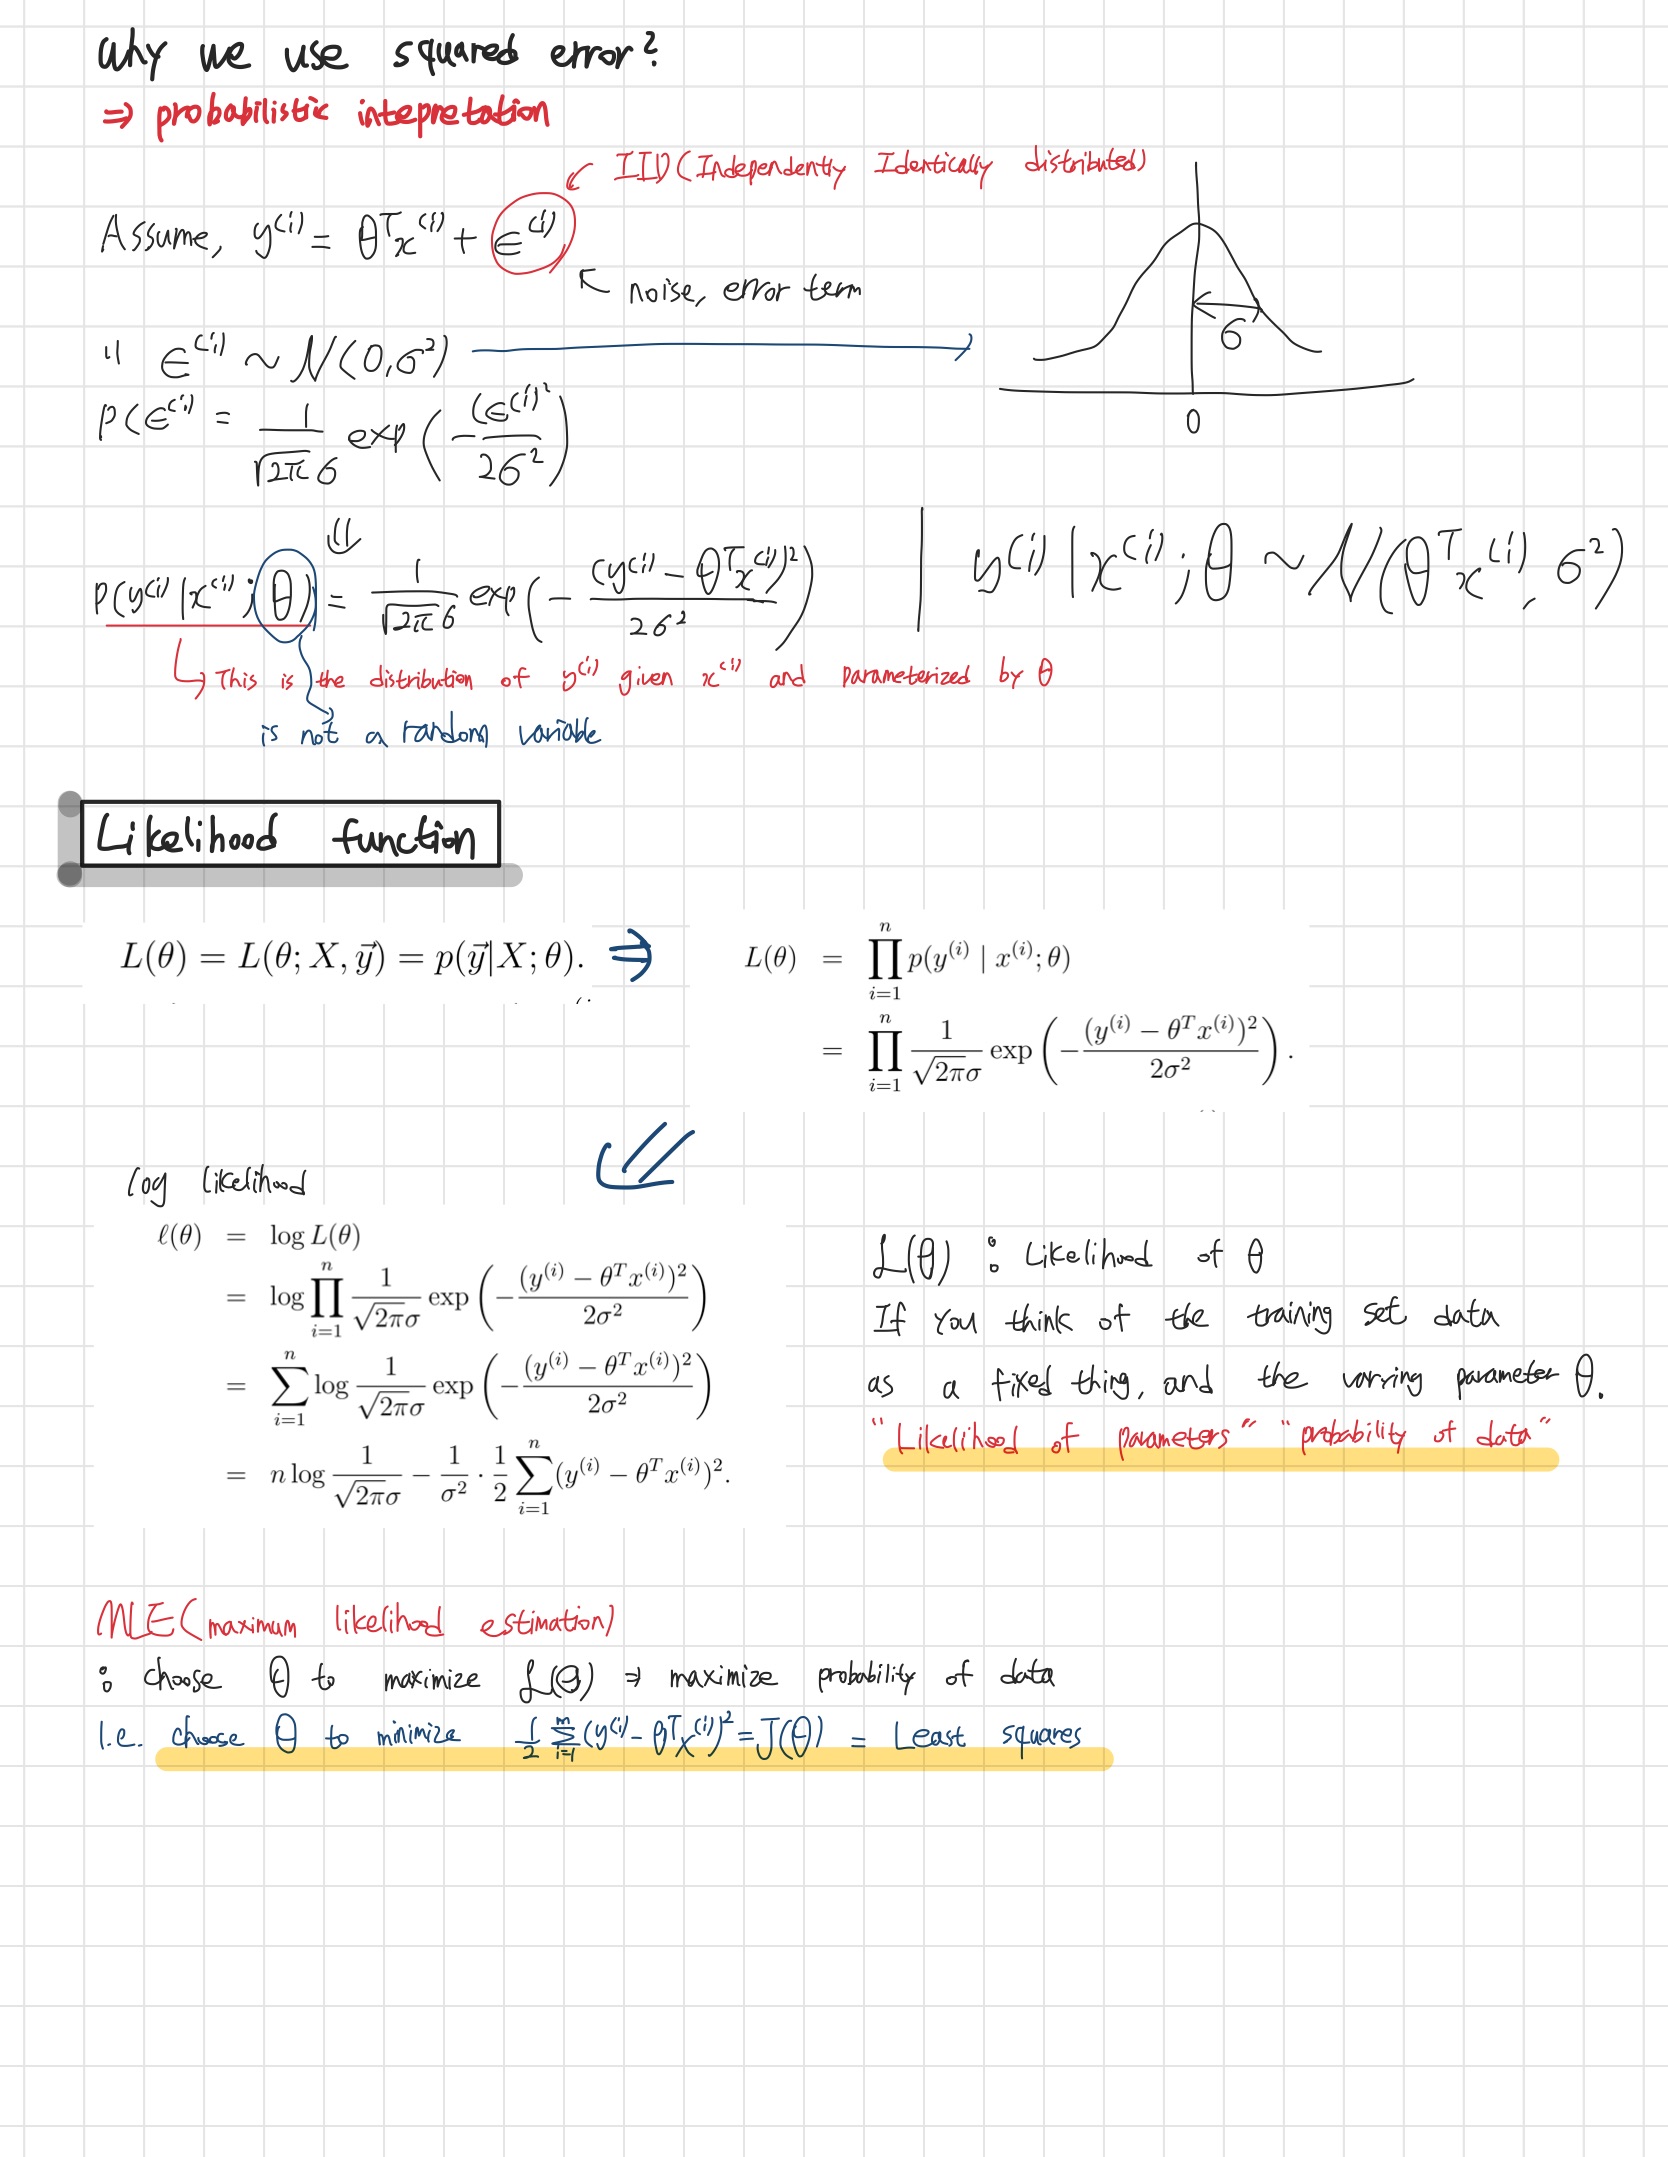 Why we use squared error?
⇒ probabilistic intepretation
IID (Independently Identically distributed)
Assume, y⁽ⁱ⁾ = θᵀx⁽ⁱ⁾ + ϵ⁽ⁱ⁾
noise, error term
σ
0
" ϵ⁽ⁱ⁾ ~ N(0, σ²)
P(ϵ⁽ⁱ⁾ = 1/(√2π σ) exp(-(ϵ⁽ⁱ⁾²/2σ²)
⇓
P(y⁽ⁱ⁾|x⁽ⁱ⁾; θ) = 1/(√2π σ) exp(-(y⁽ⁱ⁾ - θᵀx⁽ⁱ⁾)²/2σ²) | y⁽ⁱ⁾|x⁽ⁱ⁾; θ ~ N(θᵀx⁽ⁱ⁾, σ²)
This is the distribution of y⁽ⁱ⁾ given x⁽ⁱ⁾ and parameterized by θ
is not a random variable
Likelihood function
L(θ) = L(θ; X, y⃗) = p(y⃗|X; θ). ⇒
L(θ) = ∏ⁿᵢ₌₁ p(y⁽ⁱ⁾ | x⁽ⁱ⁾; θ)
= ∏ⁿᵢ₌₁ 1/(√2πσ) exp(-(y⁽ⁱ⁾ - θᵀx⁽ⁱ⁾)²/2σ²).
log likelihood
ℓ(θ) = log L(θ)
= log ∏ⁿᵢ₌₁ 1/(√2πσ) exp(-(y⁽ⁱ⁾ - θᵀx⁽ⁱ⁾)²/2σ²)
= ∑ⁿᵢ₌₁ log 1/(√2πσ) exp(-(y⁽ⁱ⁾ - θᵀx⁽ⁱ⁾)²/2σ²)
= n log 1/(√2πσ) - 1/σ² · 1/2 ∑ⁿᵢ₌₁ (y⁽ⁱ⁾ - θᵀx⁽ⁱ⁾)².
L(θ) : Likelihood of θ
If you think of the training set data
as a fixed thing, and the varying parameter θ.
"Likelihood of parameters" "probability of data"
MLE (maximum likelihood estimation)
: choose θ to maximize L(θ) ⇒ maximize probability of data
I.e. choose θ to minimize 1/2 ∑ᵐᵢ₌₁ (y⁽ⁱ⁾ - θᵀx⁽ⁱ⁾)² = J(θ) = Least squares